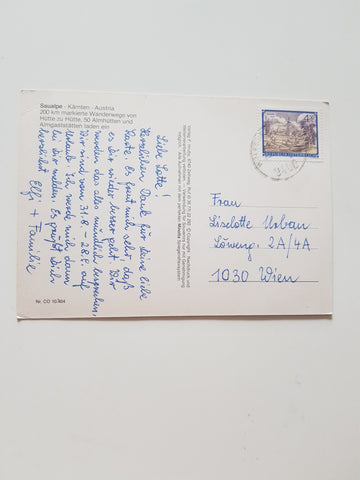 Saualpe - Kärnten - Austria
200 km markierte Wanderwege von
Hütte zu Hütte, 50 Almhütten und
Almgaststätten laden ein
Liebe Lotte!
Herzlichen Dank für deine liebe
Karte. Es freut mich sehr, daß
es Dir wieder besser geht. Wir
werden das alles mündlich besprechen.
Wir sind vom 31.8 - 28.9. auf
Urlaub. Ich werde mich dann
bei Dir melden. Es grüßt Dich
herzlichst
Elfi + Familie
Nr. CO 10.404
Frau
Liselotte Urban
Löweng. 2A/4A
1030 Wien